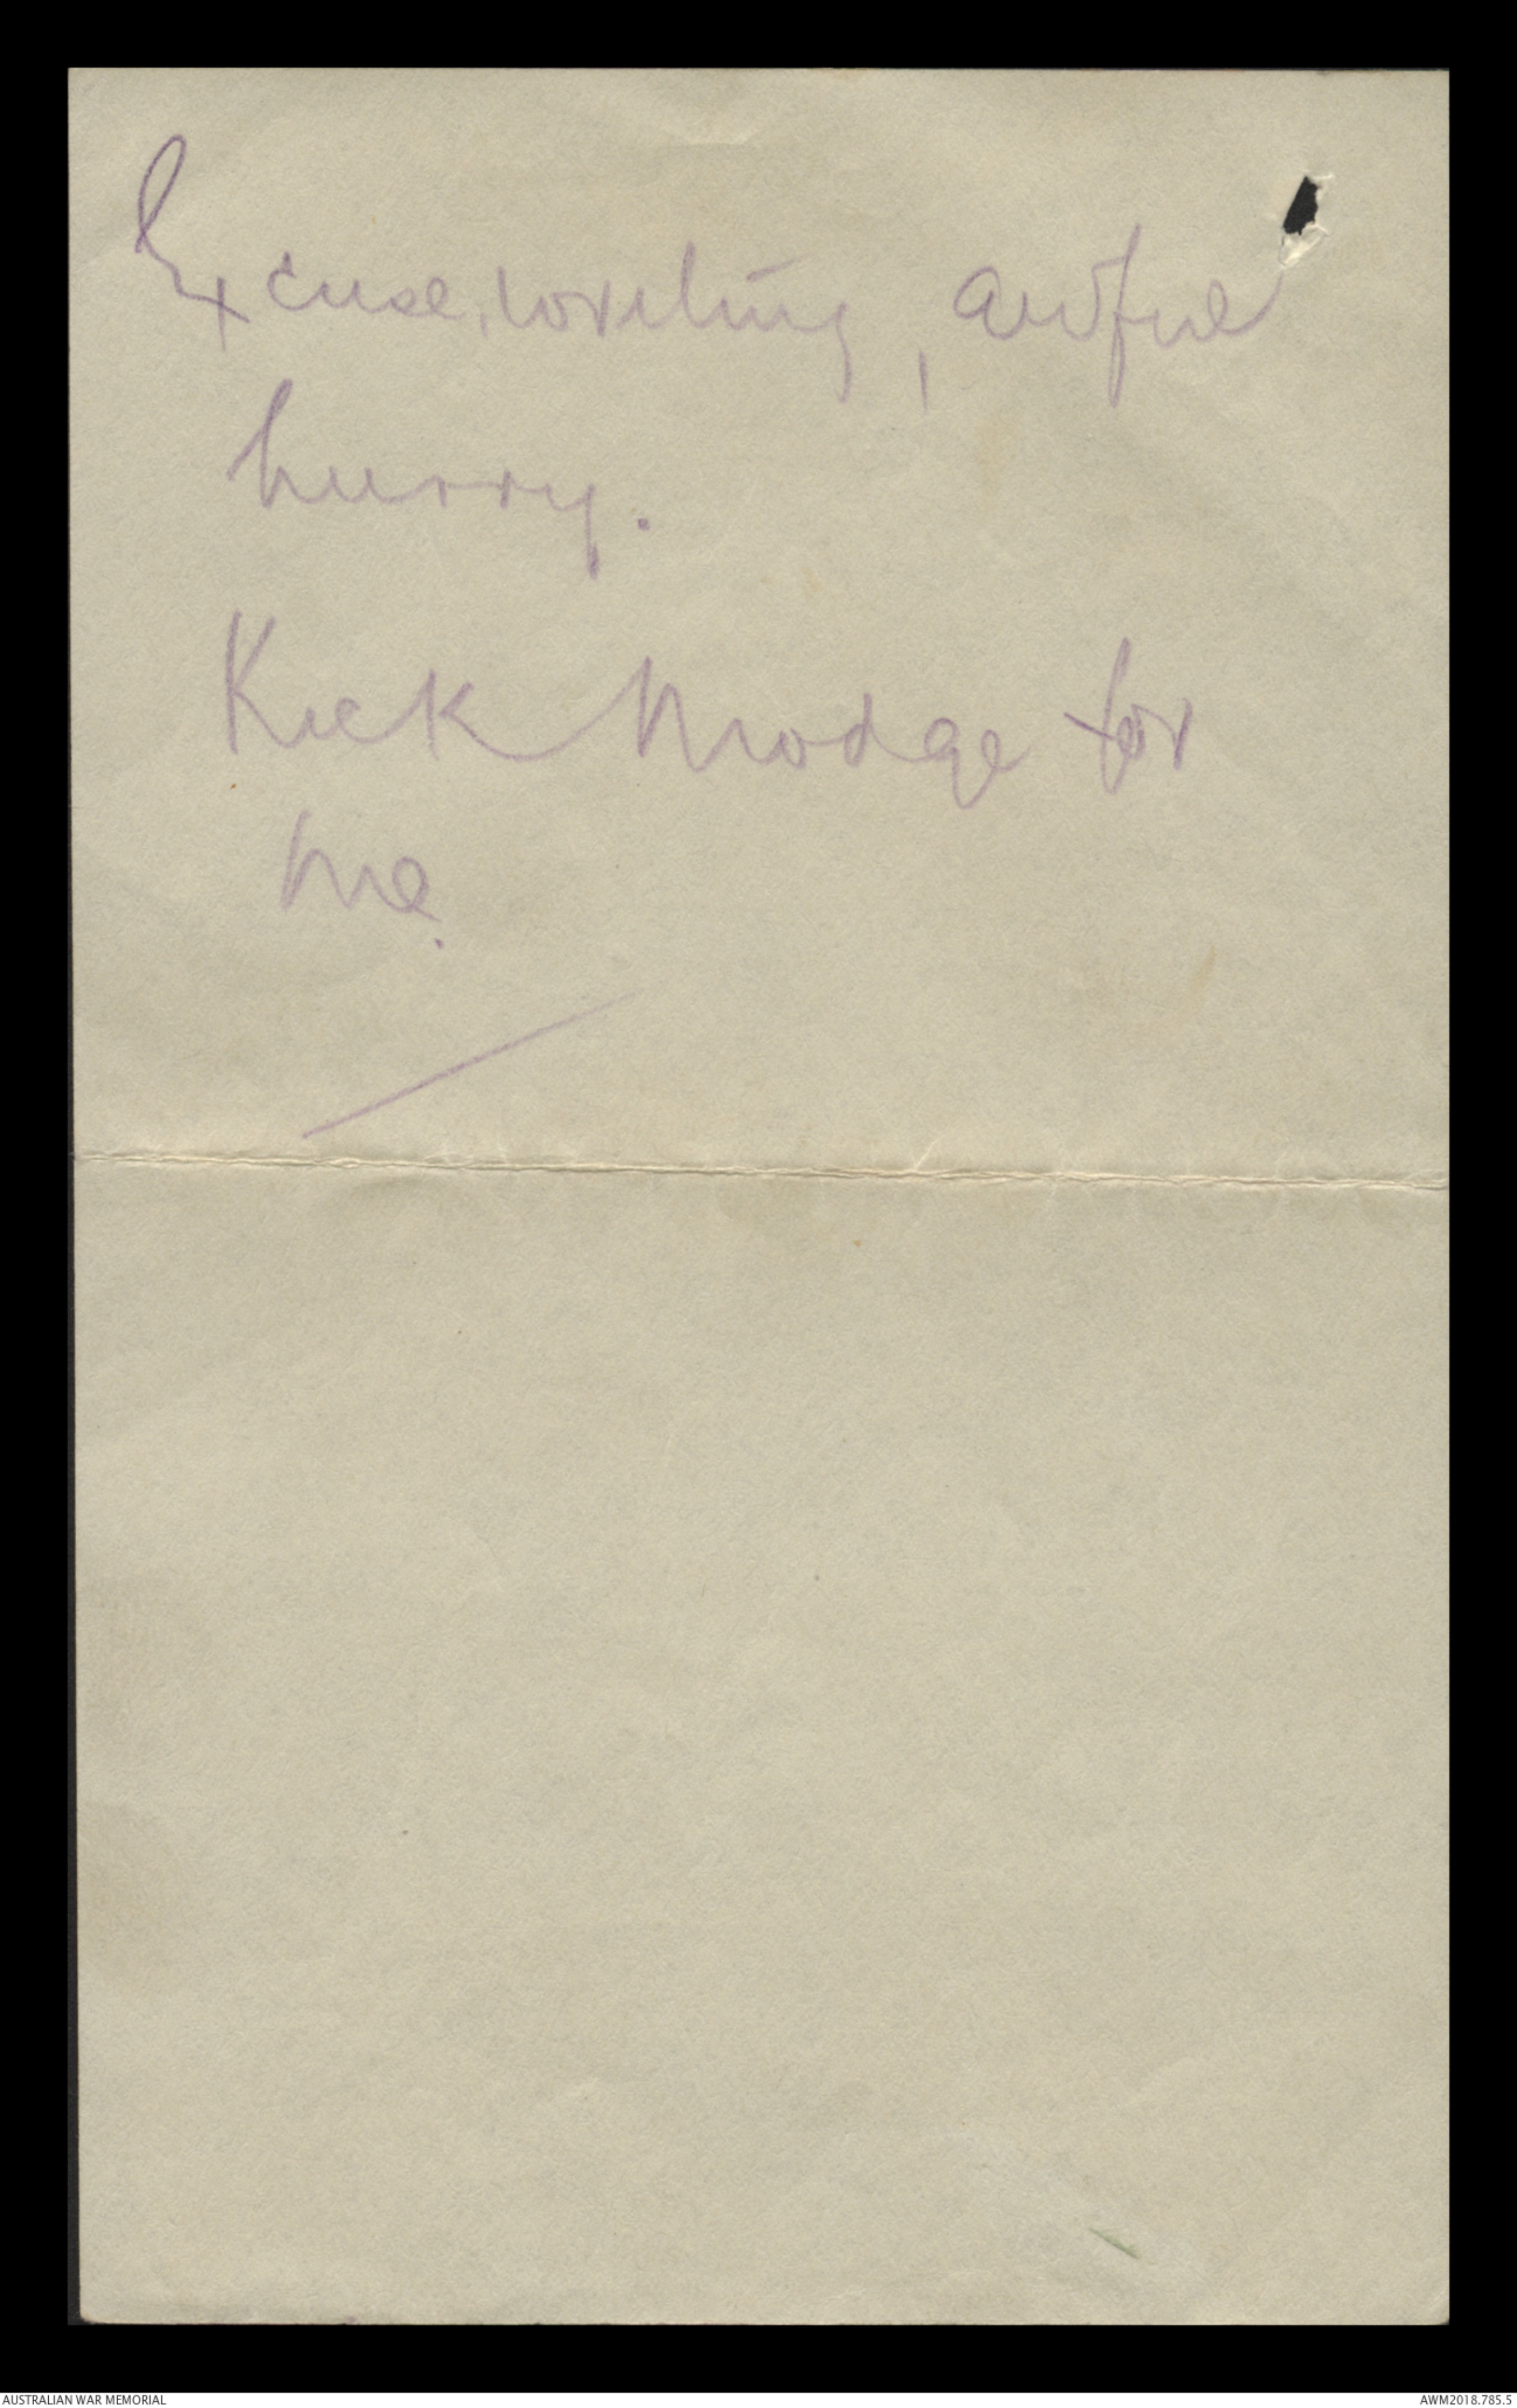 Excuse writing, awful
hurry.
Kick Modge for
me.
AUSTRALIAN WAR MEMORIAL
AWM2018.785.5